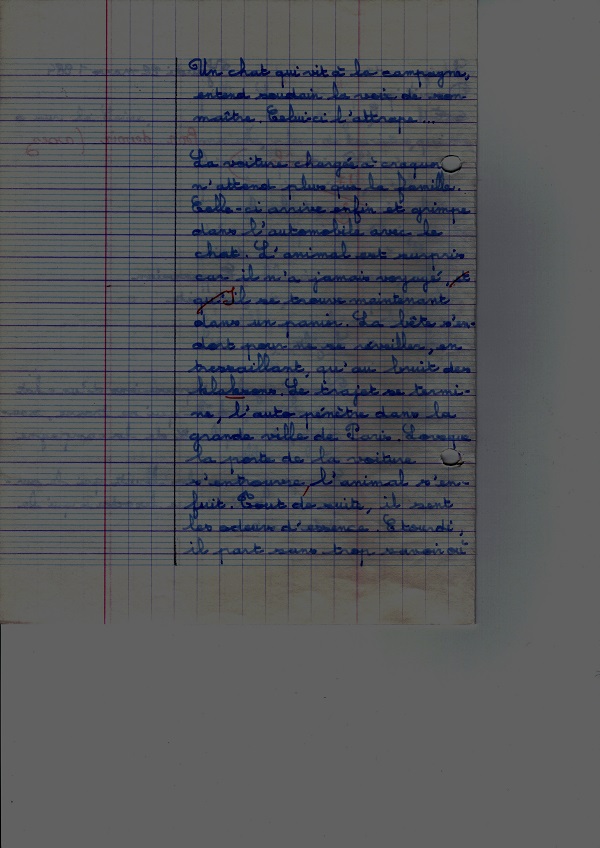 Un chat qui vit à la campagne,
entend soudain la voix de son
maître. Celui-ci l'attrape...
La voiture chargée à craquer
n'attend plus que la famille.
Celle-ci arrive enfin et grimpe
dans l'automobile avec le
chat. L'animal est surpris
car il n'a jamais voyagé, et
qu'il se trouve maintenant
dans un panier. La bête s'en-
dort pour ne se réveiller, en
tressaillant, qu'au bruit des
klaksons. Le trajet se termi-
ne, l'auto pénètre dans la
grande ville de Paris. Lorsque
la porte de la voiture
s'entrouvre, l'animal s'en-
fuit. Tout de suite, il sent
les odeurs d'essence. Etourdi,
il part sans trop savoir où